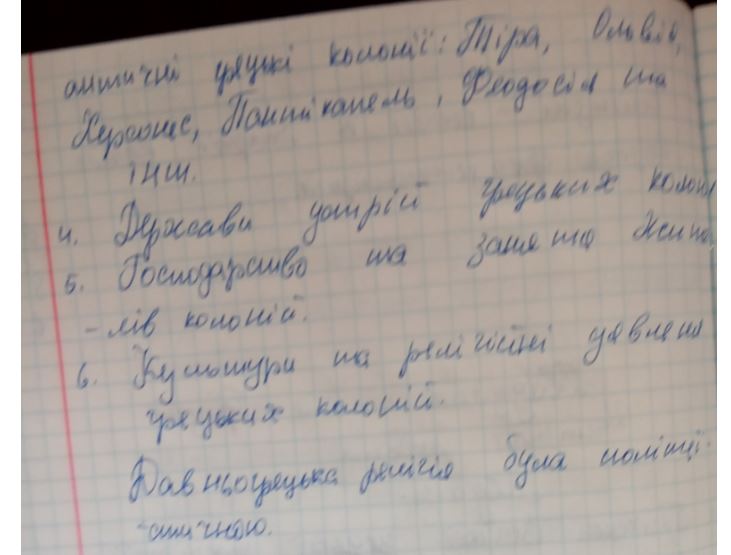 античні грецькі колонії: Тіра, Ольвія,
Херсонес, Пантікапель, Феодосія та
інш.
4. Держави устрій грецьких колоні
5. Господарство та занято жите
-лів колоній.
6. Культури та релігійні уявленя
грецьких колоній.
Давньогрецька релігія була політеї-
стичною.